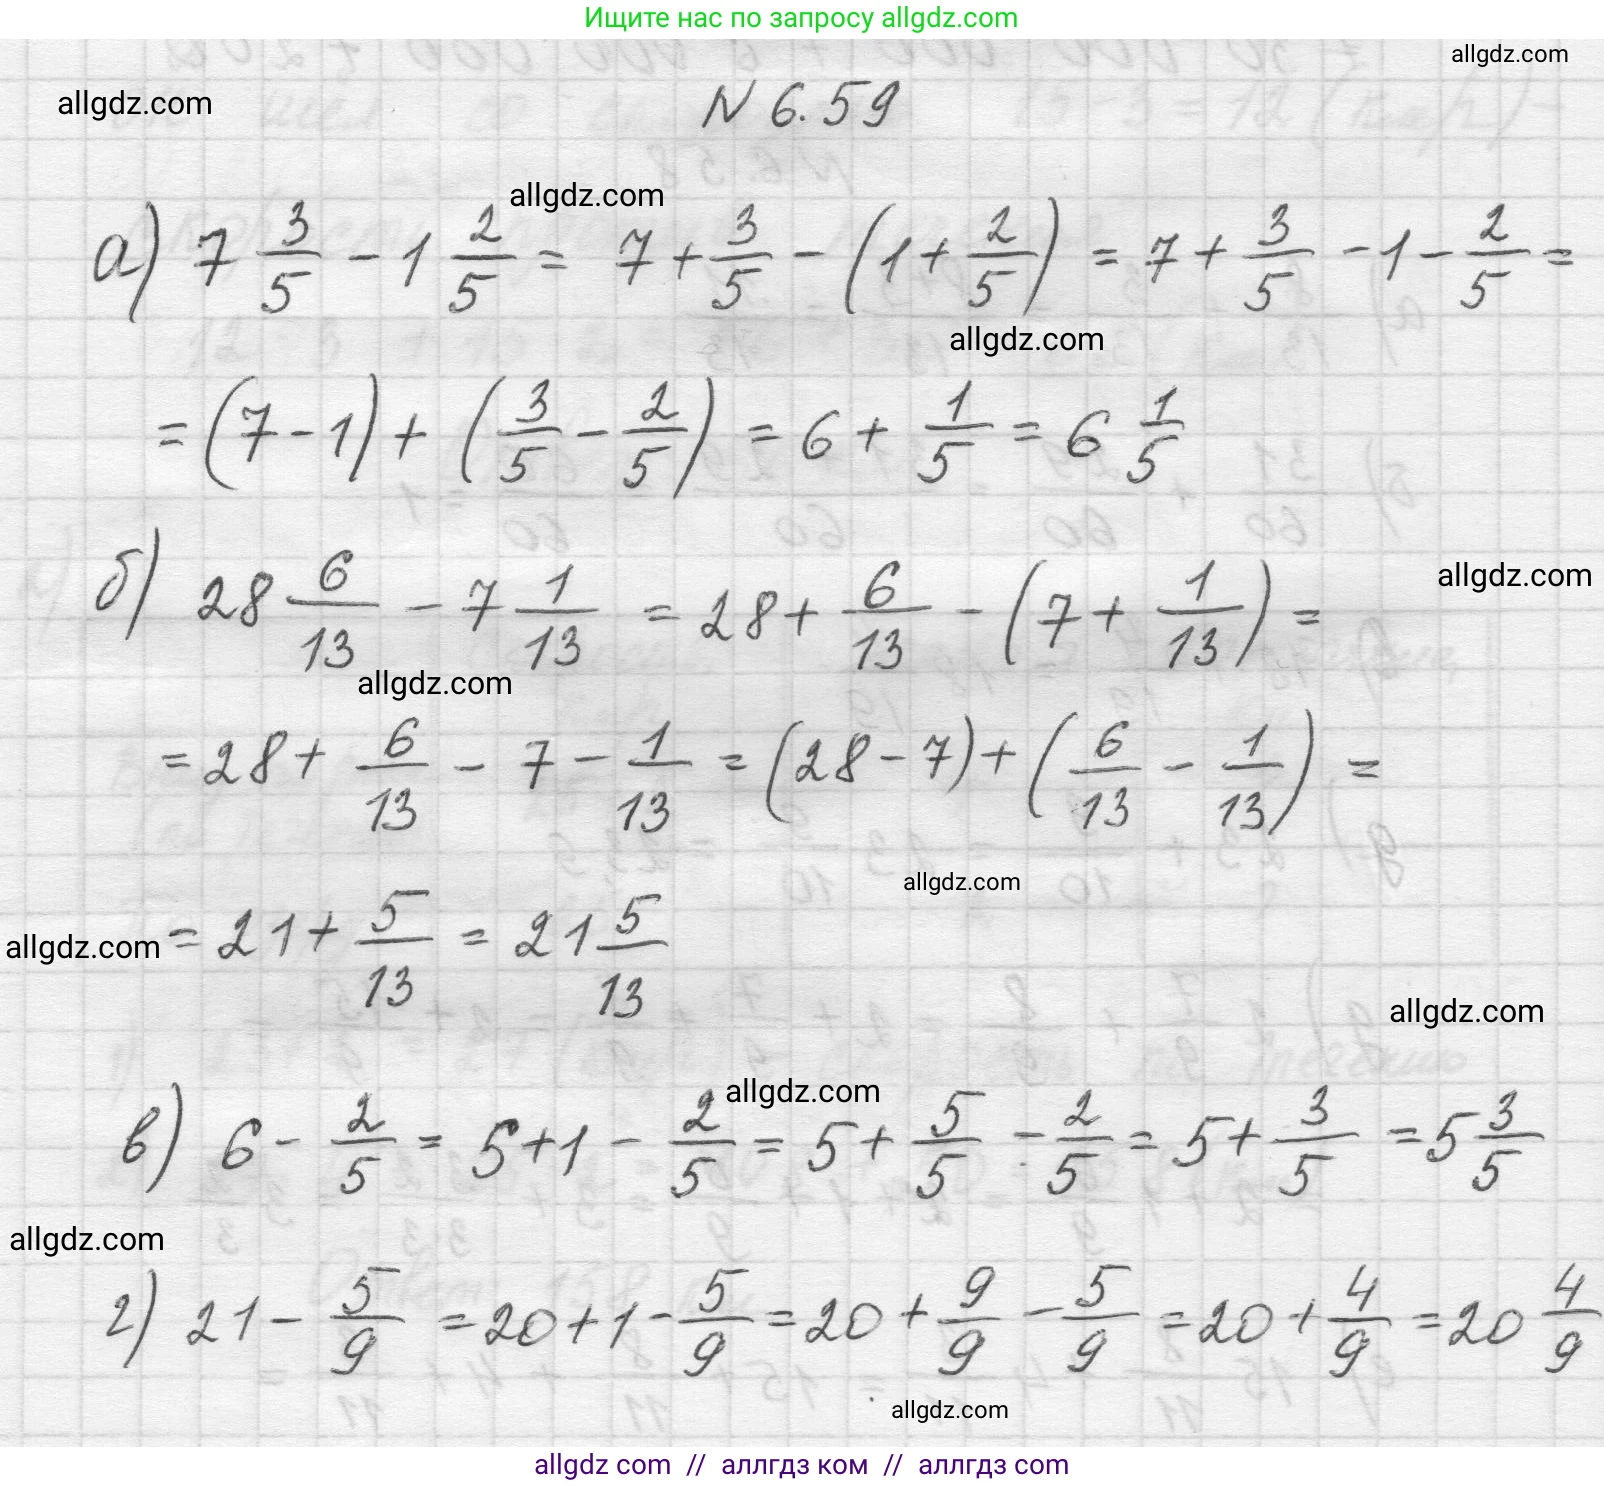 Ищите нас по запросу allgdz.com
allgdz.com
allgdz.com
N 6.59
allgdz.com
а) 7 3/5 - 1 2/5 = 7 + 3/5 - (1 + 2/5) = 7 + 3/5 - 1 - 2/5 =
allgdz.com
= (7 - 1) + (3/5 - 2/5) = 6 + 1/5 = 6 1/5
allgdz.com
б) 28 6/13 - 7 1/13 = 28 + 6/13 - (7 + 1/13) =
allgdz.com
= 28 + 6/13 - 7 - 1/13 = (28 - 7) + (6/13 - 1/13) =
allgdz.com
allgdz.com
= 21 + 5/13 = 21 5/13
allgdz.com
allgdz.com
в) 6 - 2/5 = 5 + 1 - 2/5 = 5 + 5/5 - 2/5 = 5 + 3/5 = 5 3/5
allgdz.com
г) 21 - 5/9 = 20 + 1 - 5/9 = 20 + 9/9 - 5/9 = 20 + 4/9 = 20 4/9
allgdz.com
allgdz com // аллгдз ком // аллгдз com